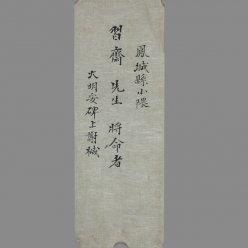 鳳城縣小隈
習齋 先生 將命者
大明安碑上謝械